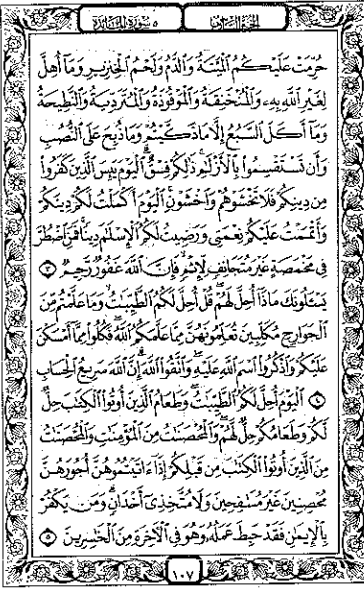 الجزء السادس
٥ سورة المائدة
حُرِّمَتْ عَلَيْكُمُ ٱلْمَيْتَةُ وَٱلدَّمُ وَلَحْمُ ٱلْخِنزِيرِ وَمَآ أُهِلَّ
لِغَيْرِ ٱللَّهِ بِهِۦ وَٱلْمُنْخَنِقَةُ وَٱلْمَوْقُوذَةُ وَٱلْمُتَرَدِّيَةُ وَٱلنَّطِيحَةُ
وَمَآ أَكَلَ ٱلسَّبُعُ إِلَّا مَا ذَكَّيْتُمْ وَمَا ذُبِحَ عَلَى ٱلنُّصُبِ
وَأَن تَسْتَقْسِمُوا۟ بِٱلْأَزْلَٰمِ ۚ ذَٰلِكُمْ فِسْقٌ ۗ ٱلْيَوْمَ يَئِسَ ٱلَّذِينَ كَفَرُوا۟
مِن دِينِكُمْ فَلَا تَخْشَوْهُمْ وَٱخْشَوْنِ ۚ ٱلْيَوْمَ أَكْمَلْتُ لَكُمْ دِينَكُمْ
وَأَتْمَمْتُ عَلَيْكُمْ نِعْمَتِى وَرَضِيتُ لَكُمُ ٱلْإِسْلَٰمَ دِينًا ۚ فَمَنِ ٱضْطُرَّ
فِى مَخْمَصَةٍ غَيْرَ مُتَجَانِفٍ لِّإِثْمٍ ۙ فَإِنَّ ٱللَّهَ غَفُورٌ رَّحِيمٌ ٣
يَسْـَٔلُونَكَ مَاذَآ أُحِلَّ لَهُمْ ۖ قُلْ أُحِلَّ لَكُمُ ٱلطَّيِّبَٰتُ ۙ وَمَا عَلَّمْتُم مِّنَ
ٱلْجَوَارِحِ مُكَلِّبِينَ تُعَلِّمُونَهُنَّ مِمَّا عَلَّمَكُمُ ٱللَّهُ ۖ فَكُلُوا۟ مِمَّآ أَمْسَكْنَ
عَلَيْكُمْ وَٱذْكُرُوا۟ ٱسْمَ ٱللَّهِ عَلَيْهِ ۖ وَٱتَّقُوا۟ ٱللَّهَ ۚ إِنَّ ٱللَّهَ سَرِيعُ ٱلْحِسَابِ
٤ ٱلْيَوْمَ أُحِلَّ لَكُمُ ٱلطَّيِّبَٰتُ ۖ وَطَعَامُ ٱلَّذِينَ أُوتُوا۟ ٱلْكِتَٰبَ حِلٌّ
لَّكُمْ وَطَعَامُكُمْ حِلٌّ لَّهُمْ ۖ وَٱلْمُحْصَنَٰتُ مِنَ ٱلْمُؤْمِنَٰتِ وَٱلْمُحْصَنَٰتُ
مِنَ ٱلَّذِينَ أُوتُوا۟ ٱلْكِتَٰبَ مِن قَبْلِكُمْ إِذَآ ءَاتَيْتُمُوهُنَّ أُجُورَهُنَّ
مُحْصِنِينَ غَيْرَ مُسَٰفِحِينَ وَلَا مُتَّخِذِىٓ أَخْدَانٍ ۗ وَمَن يَكْفُرْ
بِٱلْإِيمَٰنِ فَقَدْ حَبِطَ عَمَلُهُۥ وَهُوَ فِى ٱلْءَاخِرَةِ مِنَ ٱلْخَٰسِرِينَ ٥
١٠٧